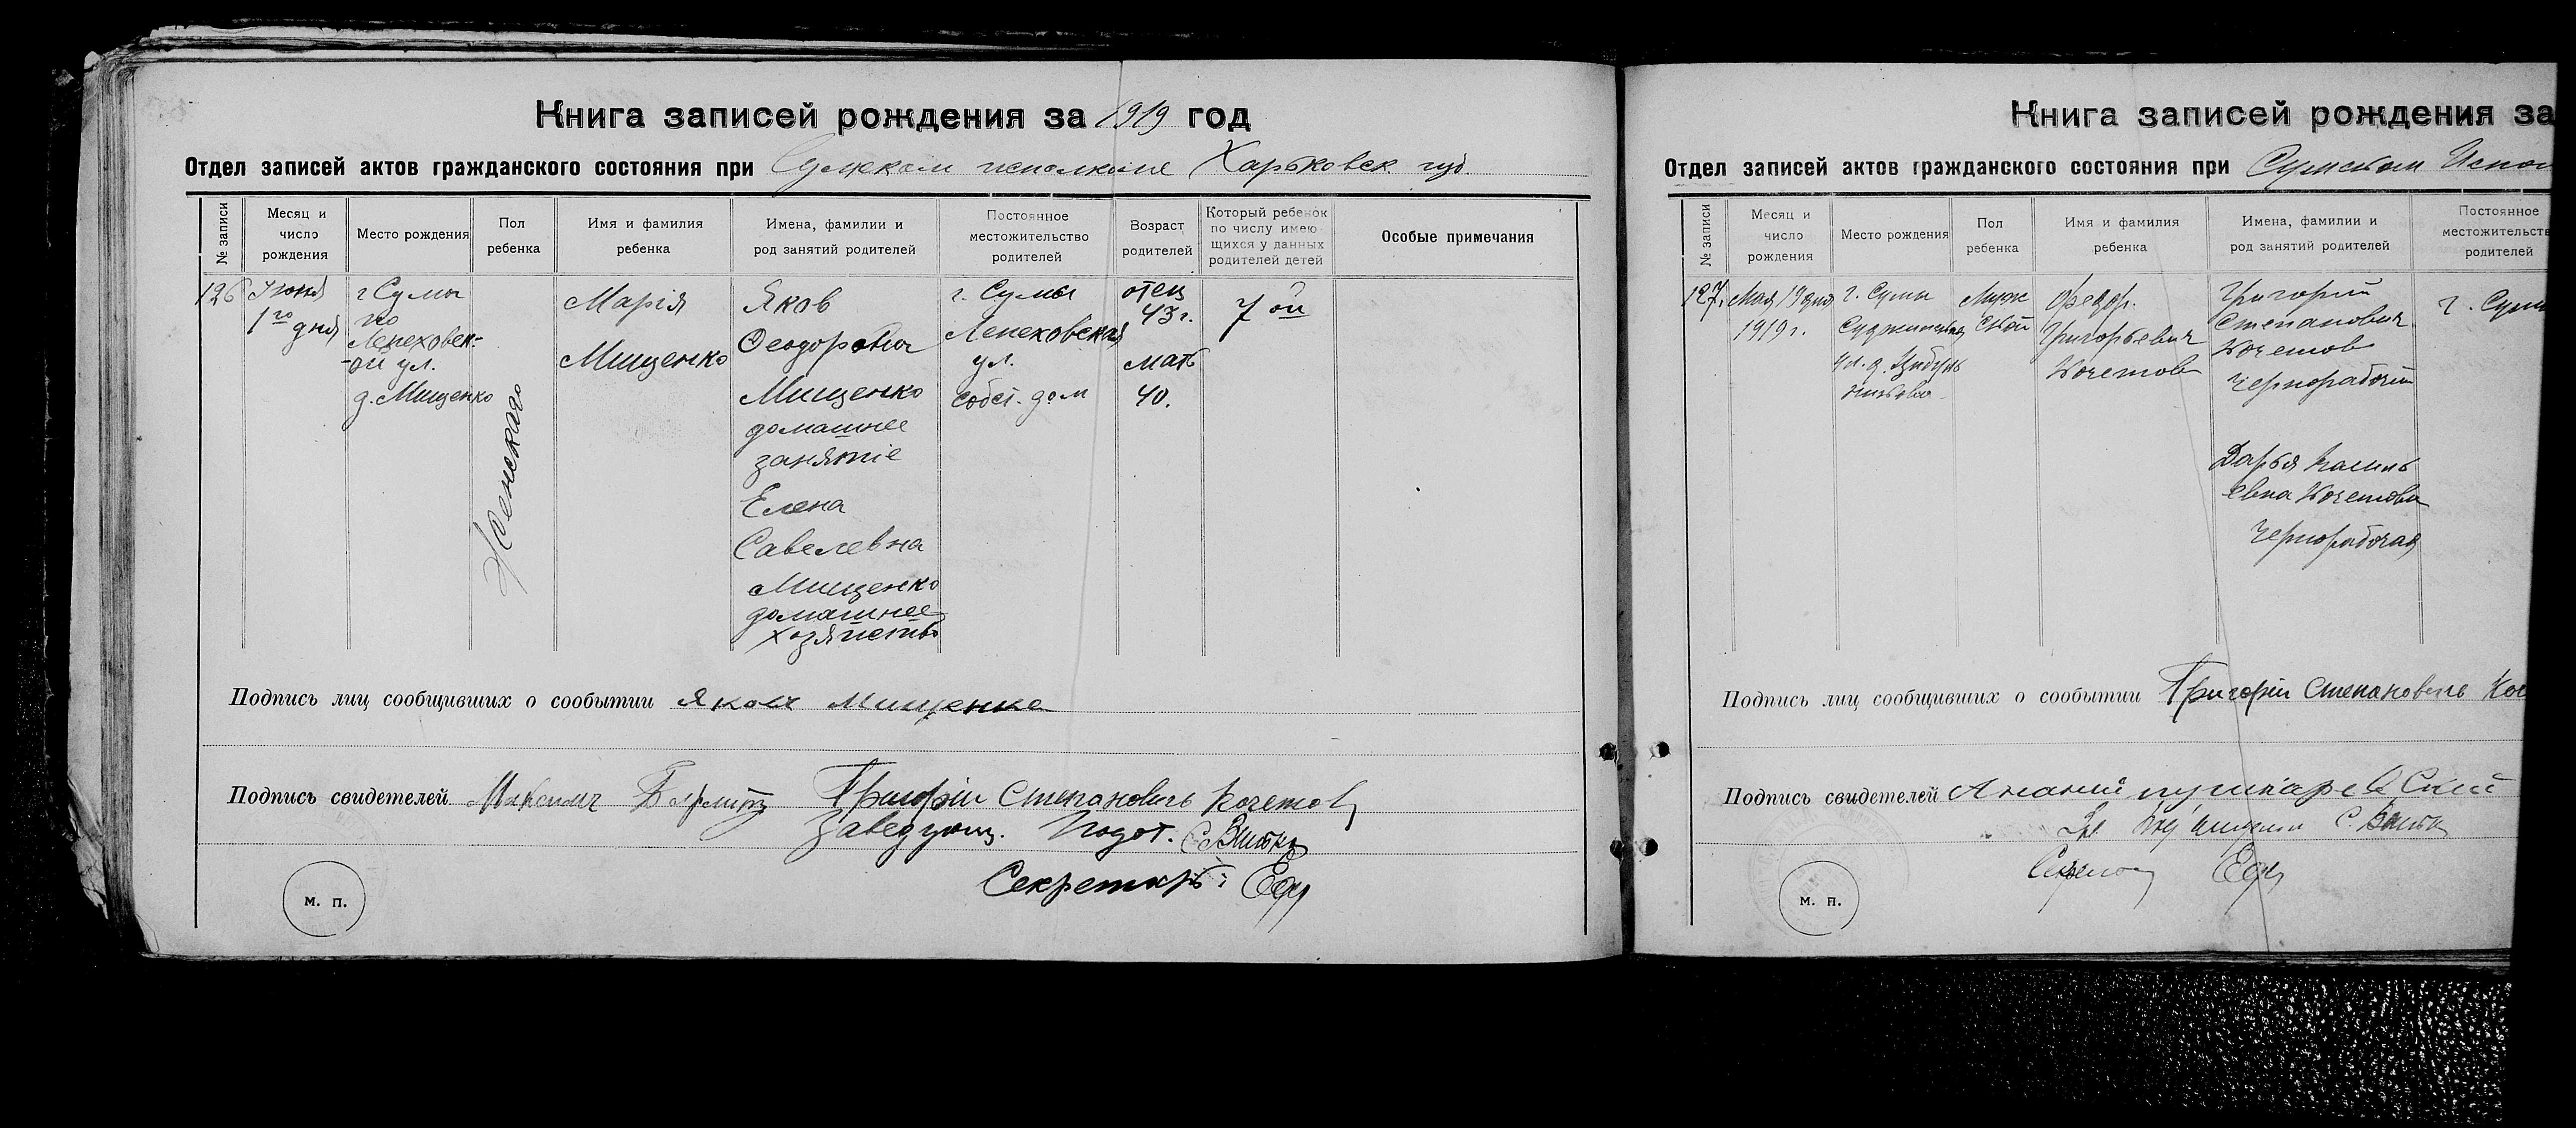 Книга записей рождения за 1919 год
Отдел записей актов гражданского состояния при Сумском исполкоме Харьковск. губ.
№ записи
Месяц и
число
рождения
Место рождения
Пол
ребенка
Имя и фамилия
ребенка
Имена, фамилии и
род занятий родителей
Постоянное
местожительство
родителей
Возраст
родителей
Который ребенок
по числу имею-
щихся у данных
родителей детей
Особые примечания
126
Июня
1го дня
г Сумы
по
Лепеховск-
-ой ул.
д. Мищенко
Женскаго
Марія
Мищенко
Яков
Феодорович
Мищенко
домашнее
занятіе
Елена
Савелевна
Мищенко
домашнее
хозяйство
г. Сумы
Лепеховская
ул.
собст. дом
отец
43 г.
мать
40.
7 ой
Подпись лиц сообщивших о сообытии Яков Мищенко
Подпись свидетелей Григорій Степановичь Кочетов
Заведующ.
Секретарь:
м. п.
Книга записей рождения за
Отдел записей актов гражданского состояния при Сумском Испол
№ записи
Месяц и
число
рождения
Место рождения
Пол
ребенка
Имя и фамилия
ребенка
Имена, фамилии и
род занятий родителей
Постоянное
местожительств
родителей
127.
Мая 19 дня
1919 г.
г. Сумы
Суджинская
ул. д.
Муж
ской
Григорьевич
Кочетов
Григорий
Степанович
Кочетов
Чернорабочий
Дарья
евна Кочетова
Чернорабочая
г. Сумы
Подпись лиц сообщивших о сообытии Григорій Степановичь Коч
Подпись свидетелей Ананий
м. п.